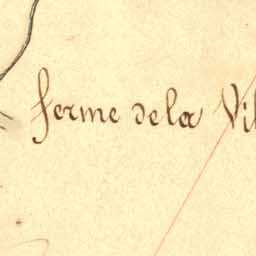 ferme de la Vil